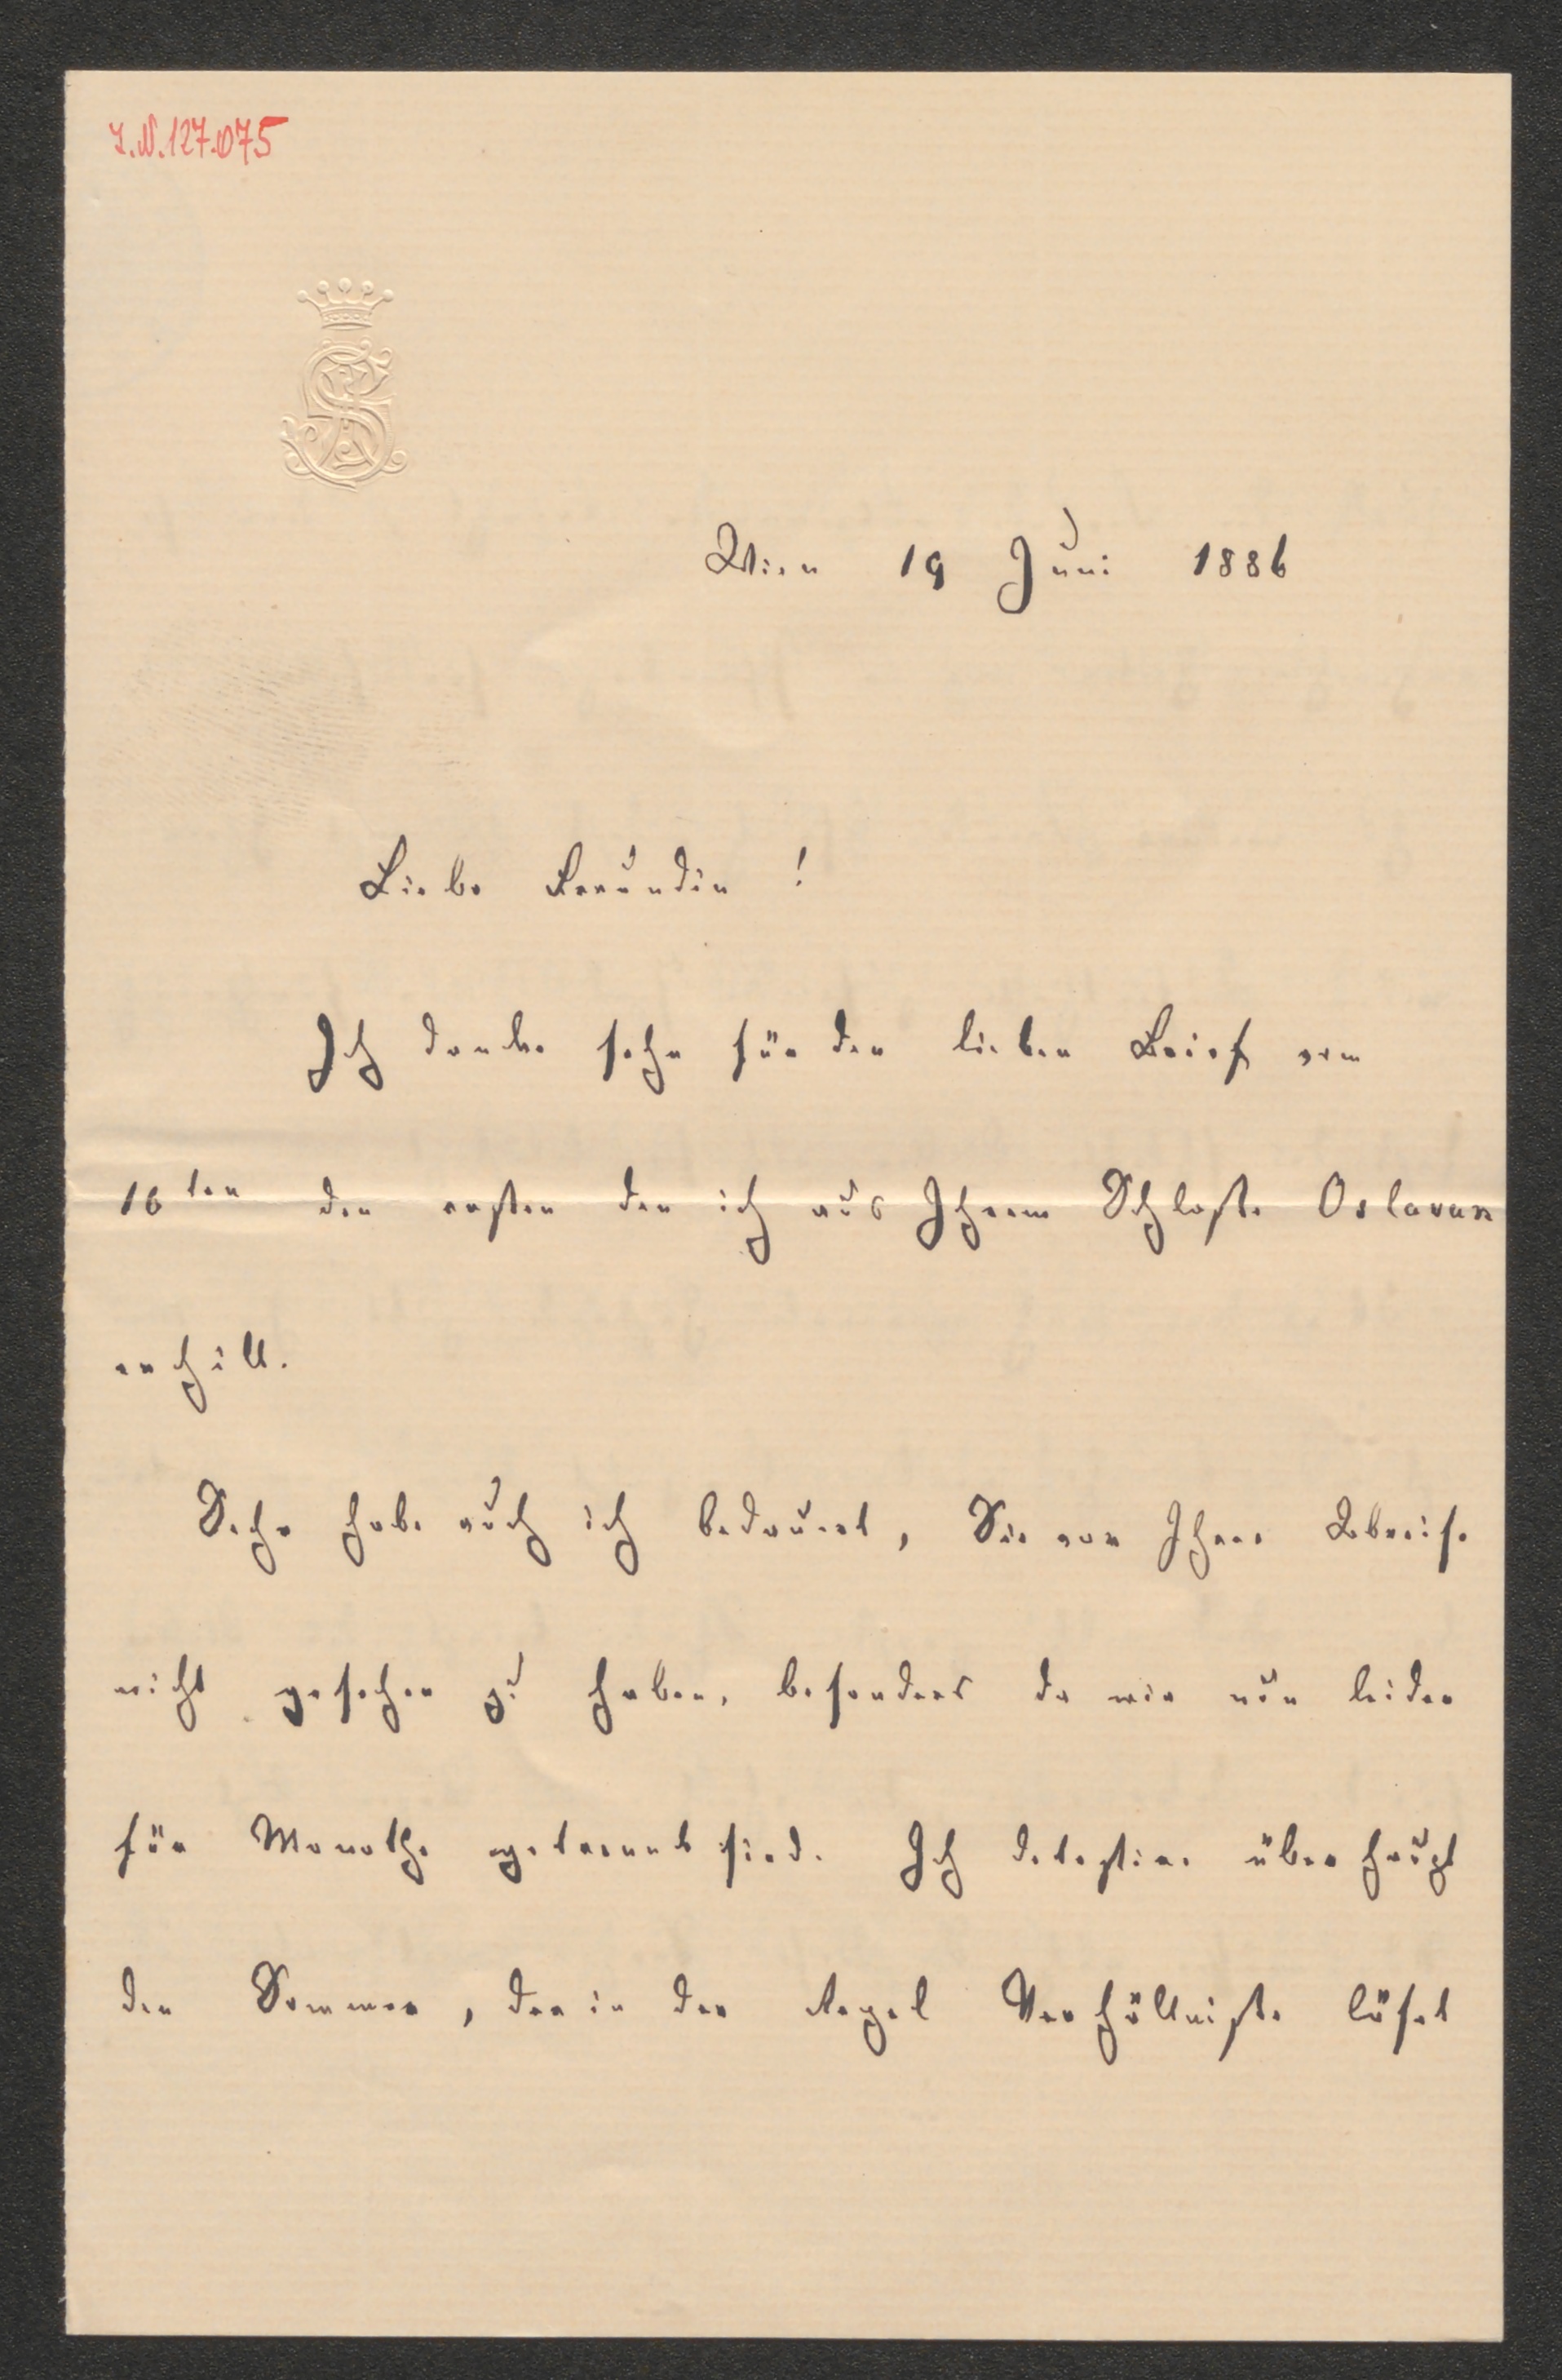 I.N. 127.075
Wien 19 Juni 1886
Liebe Freundin !
Ich danke sehr für den lieben Brief vom
16ten den ersten den ich aus Ihrem Schloße Oslavan
erhielt.
Sehr habe auch ich bedauert, Sie vor Ihrer Abreise
nicht gesehen zu haben, besonders da wir nun leider
für Monathe getrennt sind. Ich detestire überhaupt
den Sommer, der in der Regel Verhältniße löset